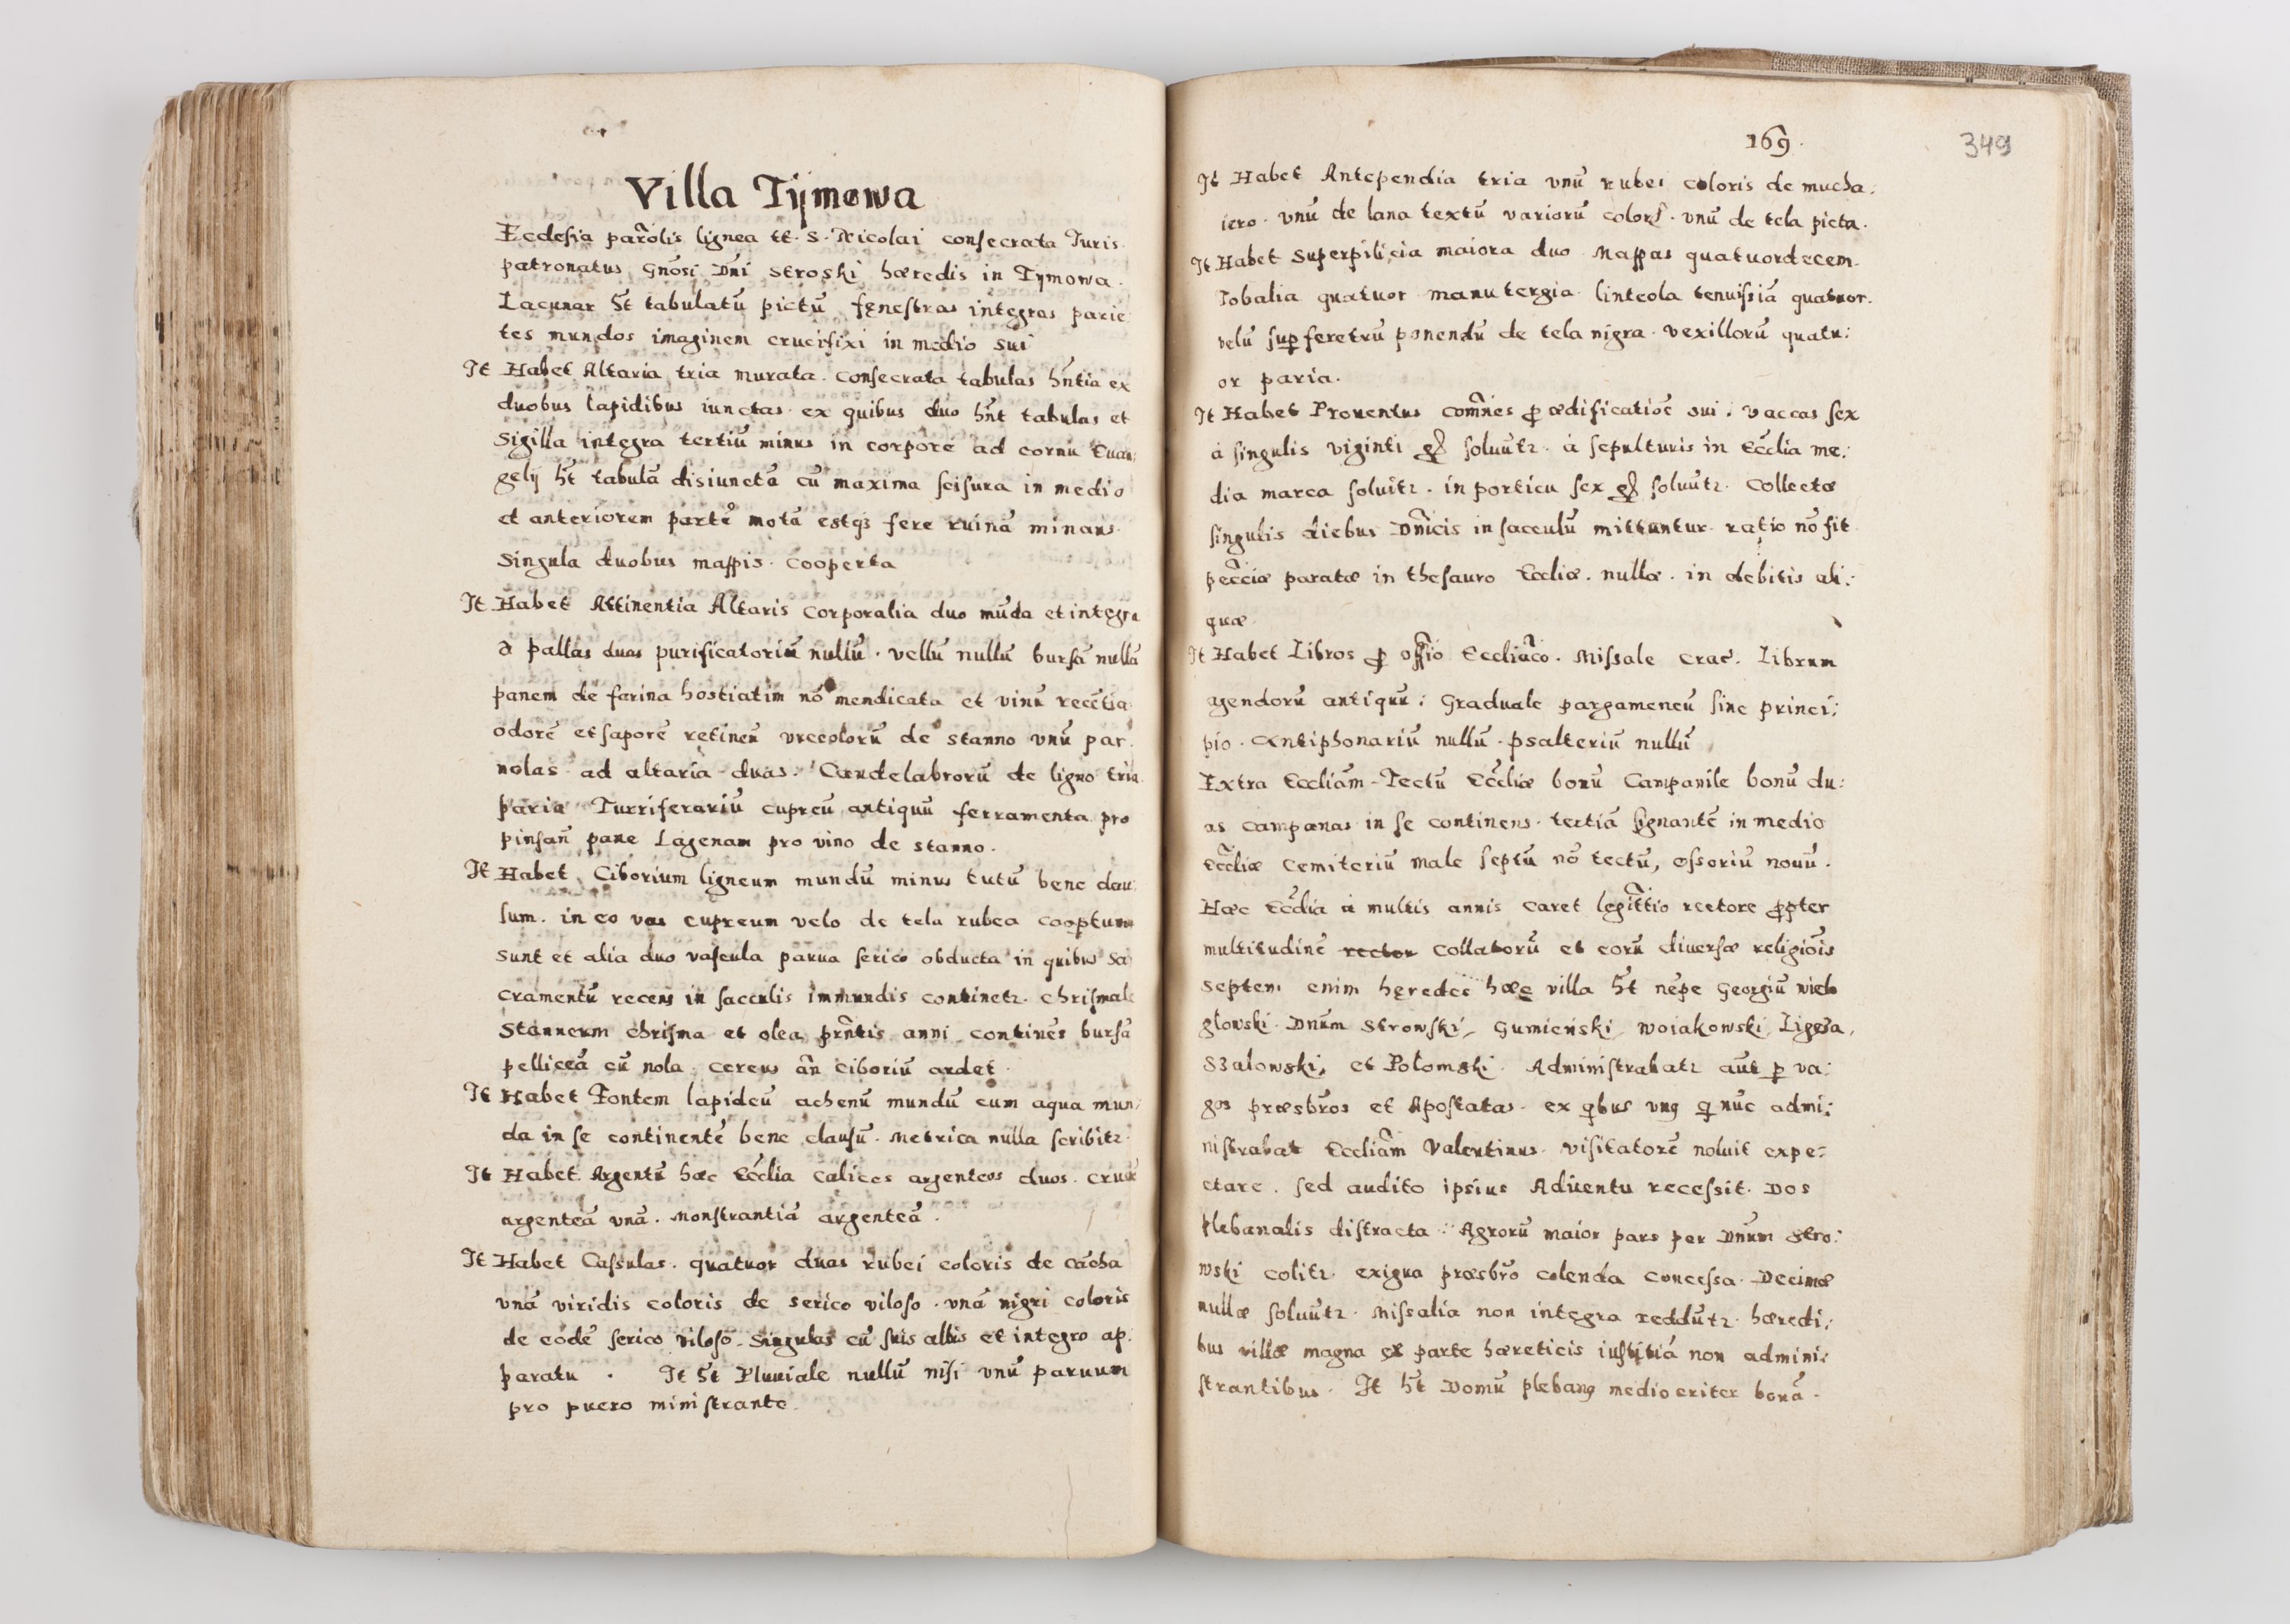 Villa Tÿmowa
Ecclesia parõlis lignea tt. S. Nicolai consecrata Juris
patronatus Gnõsi Dñi Stroski hæredis in Tÿmowa.
Lacunar h̃t tabulatũ pictũ fenestras integras parie
tes mundos imaginem crucifixi in medio sui
It Habet Altaria tria murata. Consecrata tabulas hñtia ex
duobus lapidibus iunctas ex quibus duo hñt tabulas et
Sigilla integra tertiũ minus in corpore ad cornu Euan:
gelÿ h̃t tabulã disiunctã cũ maxima scisura in medio
et anteriorem partẽ motã estqꝫ fere ruinã minans.
Singula duobus mappis. Cooperta
It Habet Attinentia Altaris Corporalia duo mũda et integra
pallas duas purificatoriũ nullũ. vellũ nullũ bursã nullã
panem de farina hostiatim nõ mendicata et vinũ recẽtia
odorẽ et saporẽ retinen urceolorũ de stanno vnũ par.
nolas ad altaria duas. Candelabrorũ de ligno tria
paria Turriferariũ cupreũ antiquũ ferramenta pro
pinsañ pane Lagenam pro vino de stanno.
It Habet Ciborium ligneum mundũ minus tutũ bene clau:
sum. in eo vas cupreum velo de tela rubea cooptum
sunt et alia duo vascula parua serico obducta in quibus Sa
cramentũ recens in sacculis immundis continetꝛ. Chrismale
Stanneum chrisma et olea prñtis anni continẽs bursã
pelliceã cũ nola. cereus añ ciboriũ ardet.
It Habet Fontem lapideũ achenũ mundũ cum aqua mun:
da in se continentẽ bene clausũ. Metrica nulla scribitꝛ.
It Habet Argentũ hæc Ecc̃lia Calices argenteos duos. Crucẽ
argenteã vnã. Monstrantiã argenteã.
It Habet Cassulas. quatuor duas rubei coloris de cãcha
vnã viridis coloris de serico viloso. vnã nigri coloris
de eodẽ serico viloso. Singulas cũ suis albis et integro ap:
paratu. It h̃t Pluuiale nullũ nisi vnũ paruum
pro puero ministrante.
169.
349
It Habet Antependia tria vnũ rubei coloris de mucha:
iero. vnũ de lana textũ variorũ colorꝭ. vnũ de tela picta.
It Habet Superpilicia maiora duo Mappas quatuordecem.
Tobalia quatuor manutergia linteola tenuissiã quatuor.
velũ suꝑ feretrũ ponendũ de tela nigra. vexillorũ quatu:
or paria.
It Habet Prouentus com̃nes ꝓ ædificatiõe sui. vaccas sex
à singulis viginti gꝭ soluũtꝛ. à sepulturis in Ecc̃lia me:
dia marca soluitꝛ. in porticu sex gꝭ soluũtꝛ. Collectæ
singulis diebus Dñicis in sacculũ mittuntur. ratio nõ fit
pecc̃iæ paratæ in thesauro Eccliæ. nullæ. in debitis ali:
quæ.
It Habet Libros ꝓ off̃io Eccliãco. Missale Crac̃. Librum
agendorũ antiquũ: Graduale pargameneũ sine princi:
pio. Antiphonariũ nullũ. psalteriũ nullũ
Extra Eccliãm. Tectũ Ecc̃liæ bonũ Campanile bonũ du:
as campanas in se continens. tertiã signantẽ in medio
Ecc̃liæ Cemiteriũ male septũ nõ tectũ, ossoriũ nouũ.
Hæc Ecc̃lia à multis annis caret legitt̃io rectore ꝓpter
multitudinẽ rector Collatorũ et eorũ diuersæ religiõis
septem enim hęredes hæc villa h̃t nẽpe Georgiũ wielo
głowski. Dnũm Strowski, Gumieński, Woiakowski, Ligęza,
Szałowski, et Połomski. Administrabatꝛ aũt ꝑ va:
gos præsbr̃os et Apostatas. ex qbus vnꝰ q nũc admi:
nistrabat Eccliãm Valentinus. visitatorẽ noluit expe:
ctare. sed audito ipsius Aduentu recessit. Dos
plebanalis distracta. Agrorũ maior pars per Dnũm Stro:
wski colitꝛ exigua præsbr̃o colenda concessa. Decimæ
nullæ soluũtꝛ. Missalia non integra reddũtꝛ. hæredi:
bus villæ magna ex parte hæreticis iustitiã non admini:
strantibus. It h̃t Domũ plebanꝰ mediocriter bonã.